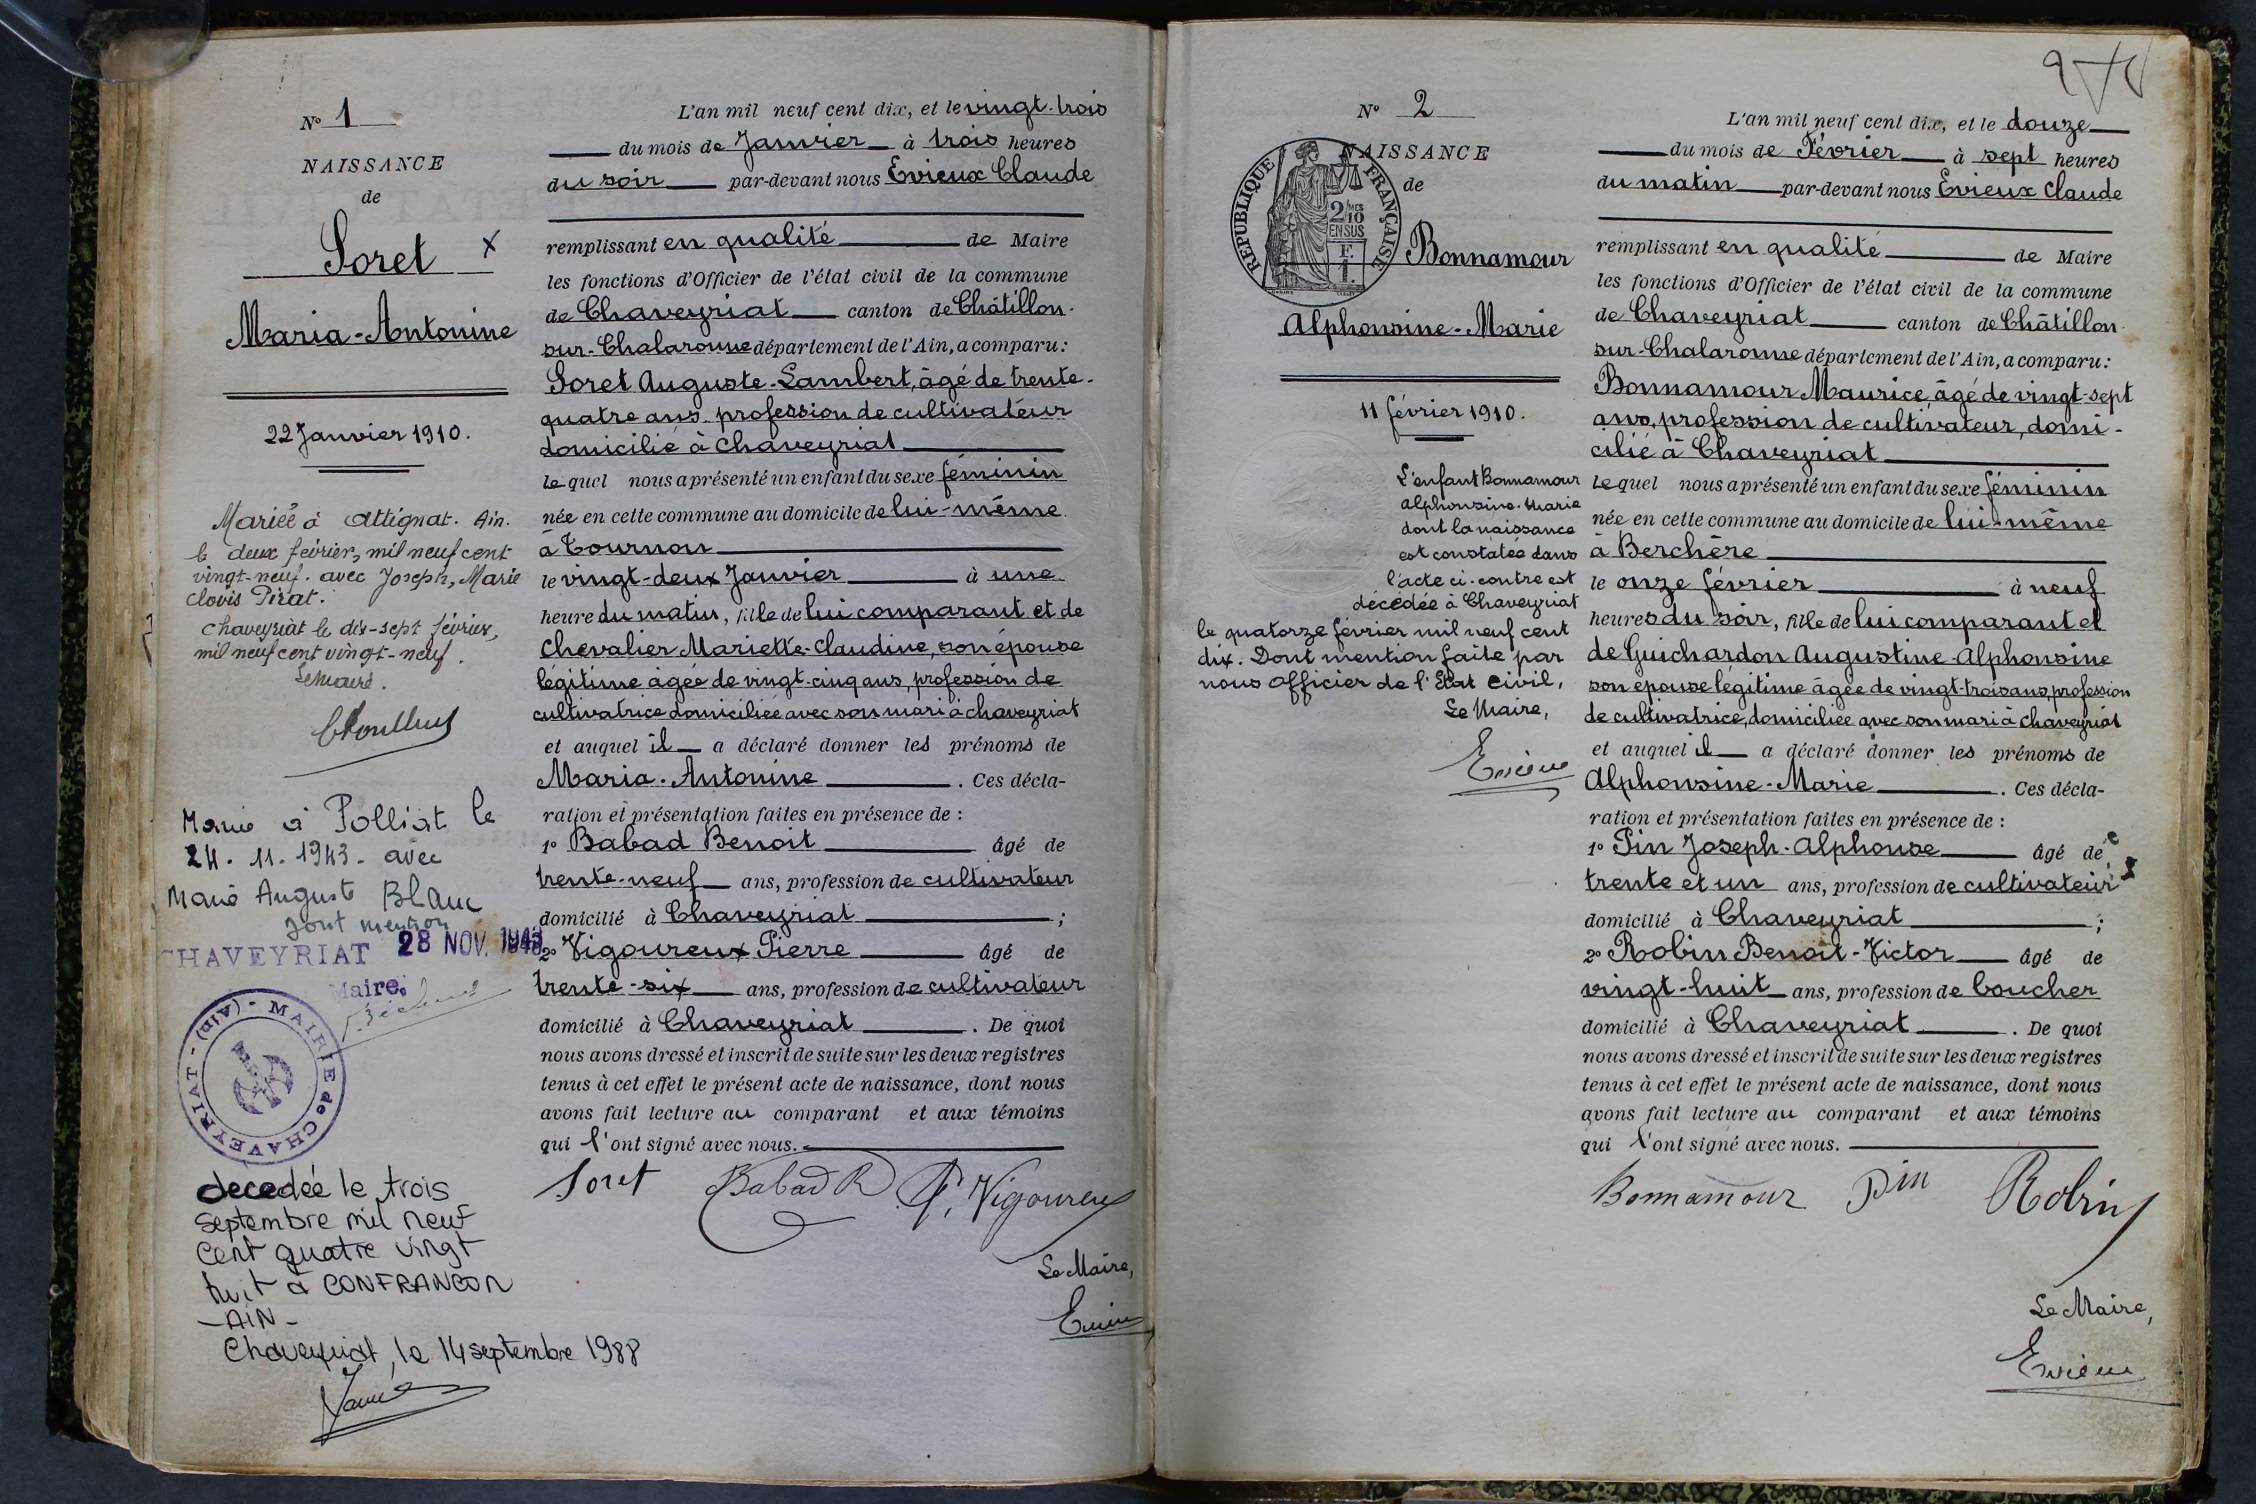 N° 1
NAISSANCE
de
Soret x
Maria-Antonine
22 Janvier 1910.
Mariée à Attignat. Ain.
le deux février, mil neuf cent
vingt-neuf. avec Joseph, Marie
Clovis Pirat.
Chaveyriat le dix-sept février,
mil neuf cent vingt-neuf.
Le Maire.
Marié à Polliat le
24. 11. 1943. avec
Marie Auguste Blanc
dont mention
CHAVEYRIAT 28 NOV. 1943
Maire.
MAIRIE de CHAVEYRIAT - (Ain) -
décédée le trois
septembre mil neuf
cent quatre vingt
huit à CONFRANCON
- AIN -
Chaveyriat, le 14 septembre 1988
L'an mil neuf cent dix, et le vingt-trois
du mois de Janvier à trois heures
du soir par-devant nous Evieux Claude
remplissant en qualité de Maire
les fonctions d'Officier de l'état civil de la commune
de Chaveyriat canton de Châtillon-
sur-Chalaronne département de l'Ain, a comparu :
Soret Auguste-Lambert, âgé de trente-
quatre ans, profession de cultivateur
domicilié à Chaveyriat
le quel nous a présenté un enfant du sexe féminin
née en cette commune au domicile de lui-même
à Tournon
le vingt-deux Janvier à une
heure du matin, fille de lui comparant et de
Chevalier Mariette-Claudine, son épouse
légitime âgée de vingt-cinq ans, profession de
cultivatrice domiciliée avec son mari à Chaveyriat
et auquel il a déclaré donner les prénoms de
Maria-Antonine . Ces décla-
ration et présentation faites en présence de :
1° Babad Benoit âgé de
trente-neuf ans, profession de cultivateur
domicilié à Chaveyriat ;
2° Vigoureux Pierre âgé de
trente-six ans, profession de cultivateur
domicilié à Chaveyriat . De quoi
nous avons dressé et inscrit de suite sur les deux registres
tenus à cet effet le présent acte de naissance, dont nous
avons fait lecture au comparant et aux témoins
qui l'ont signé avec nous.
Soret Babad B P. Vigoureux
Le Maire,
Evieux
N° 2
NAISSANCE
de
REPUBLIQUE FRANÇAISE
2/MES
10
EN SUS
F.
1.
Bonnamour
Alphonsine-Marie
11 février 1910.
L'enfant Bonnamour
Alphonsine-Marie
dont la naissance
est constatée dans
l'acte ci-contre est
décédée à Chaveyriat
le quatorze février mil neuf cent
dix. Dont mention faite par
nous Officier de l'Etat Civil,
Le Maire,
Evieux
L'an mil neuf cent dix, et le douze
du mois de Février à sept heures
du matin par-devant nous Evieux Claude
remplissant en qualité de Maire
les fonctions d'Officier de l'état civil de la commune
de Chaveyriat canton de Châtillon-
sur-Chalaronne département de l'Ain, a comparu :
Bonnamour Maurice, âgé de vingt-sept
ans, profession de cultivateur, domi-
cilié à Chaveyriat
le quel nous a présenté un enfant du sexe féminin
née en cette commune au domicile de lui-même
à Berchère
le onze février à neuf
heures du soir, fille de lui comparant et
de Guichardon Augustine-Alphonsine
son épouse légitime âgée de vingt-trois ans, profession
de cultivatrice, domiciliée avec son mari à Chaveyriat
et auquel il a déclaré donner les prénoms de
Alphonsine-Marie . Ces décla-
ration et présentation faites en présence de :
1° Pin Joseph-Alphonse âgé de
trente et un ans, profession de cultivateur
domicilié à Chaveyriat ;
2° Robin Benoît-Victor âgé de
vingt-huit ans, profession de boucher
domicilié à Chaveyriat . De quoi
nous avons dressé et inscrit de suite sur les deux registres
tenus à cet effet le présent acte de naissance, dont nous
avons fait lecture au comparant et aux témoins
qui l'ont signé avec nous.
Bonnamour Pin Robin
Le Maire,
Evieux